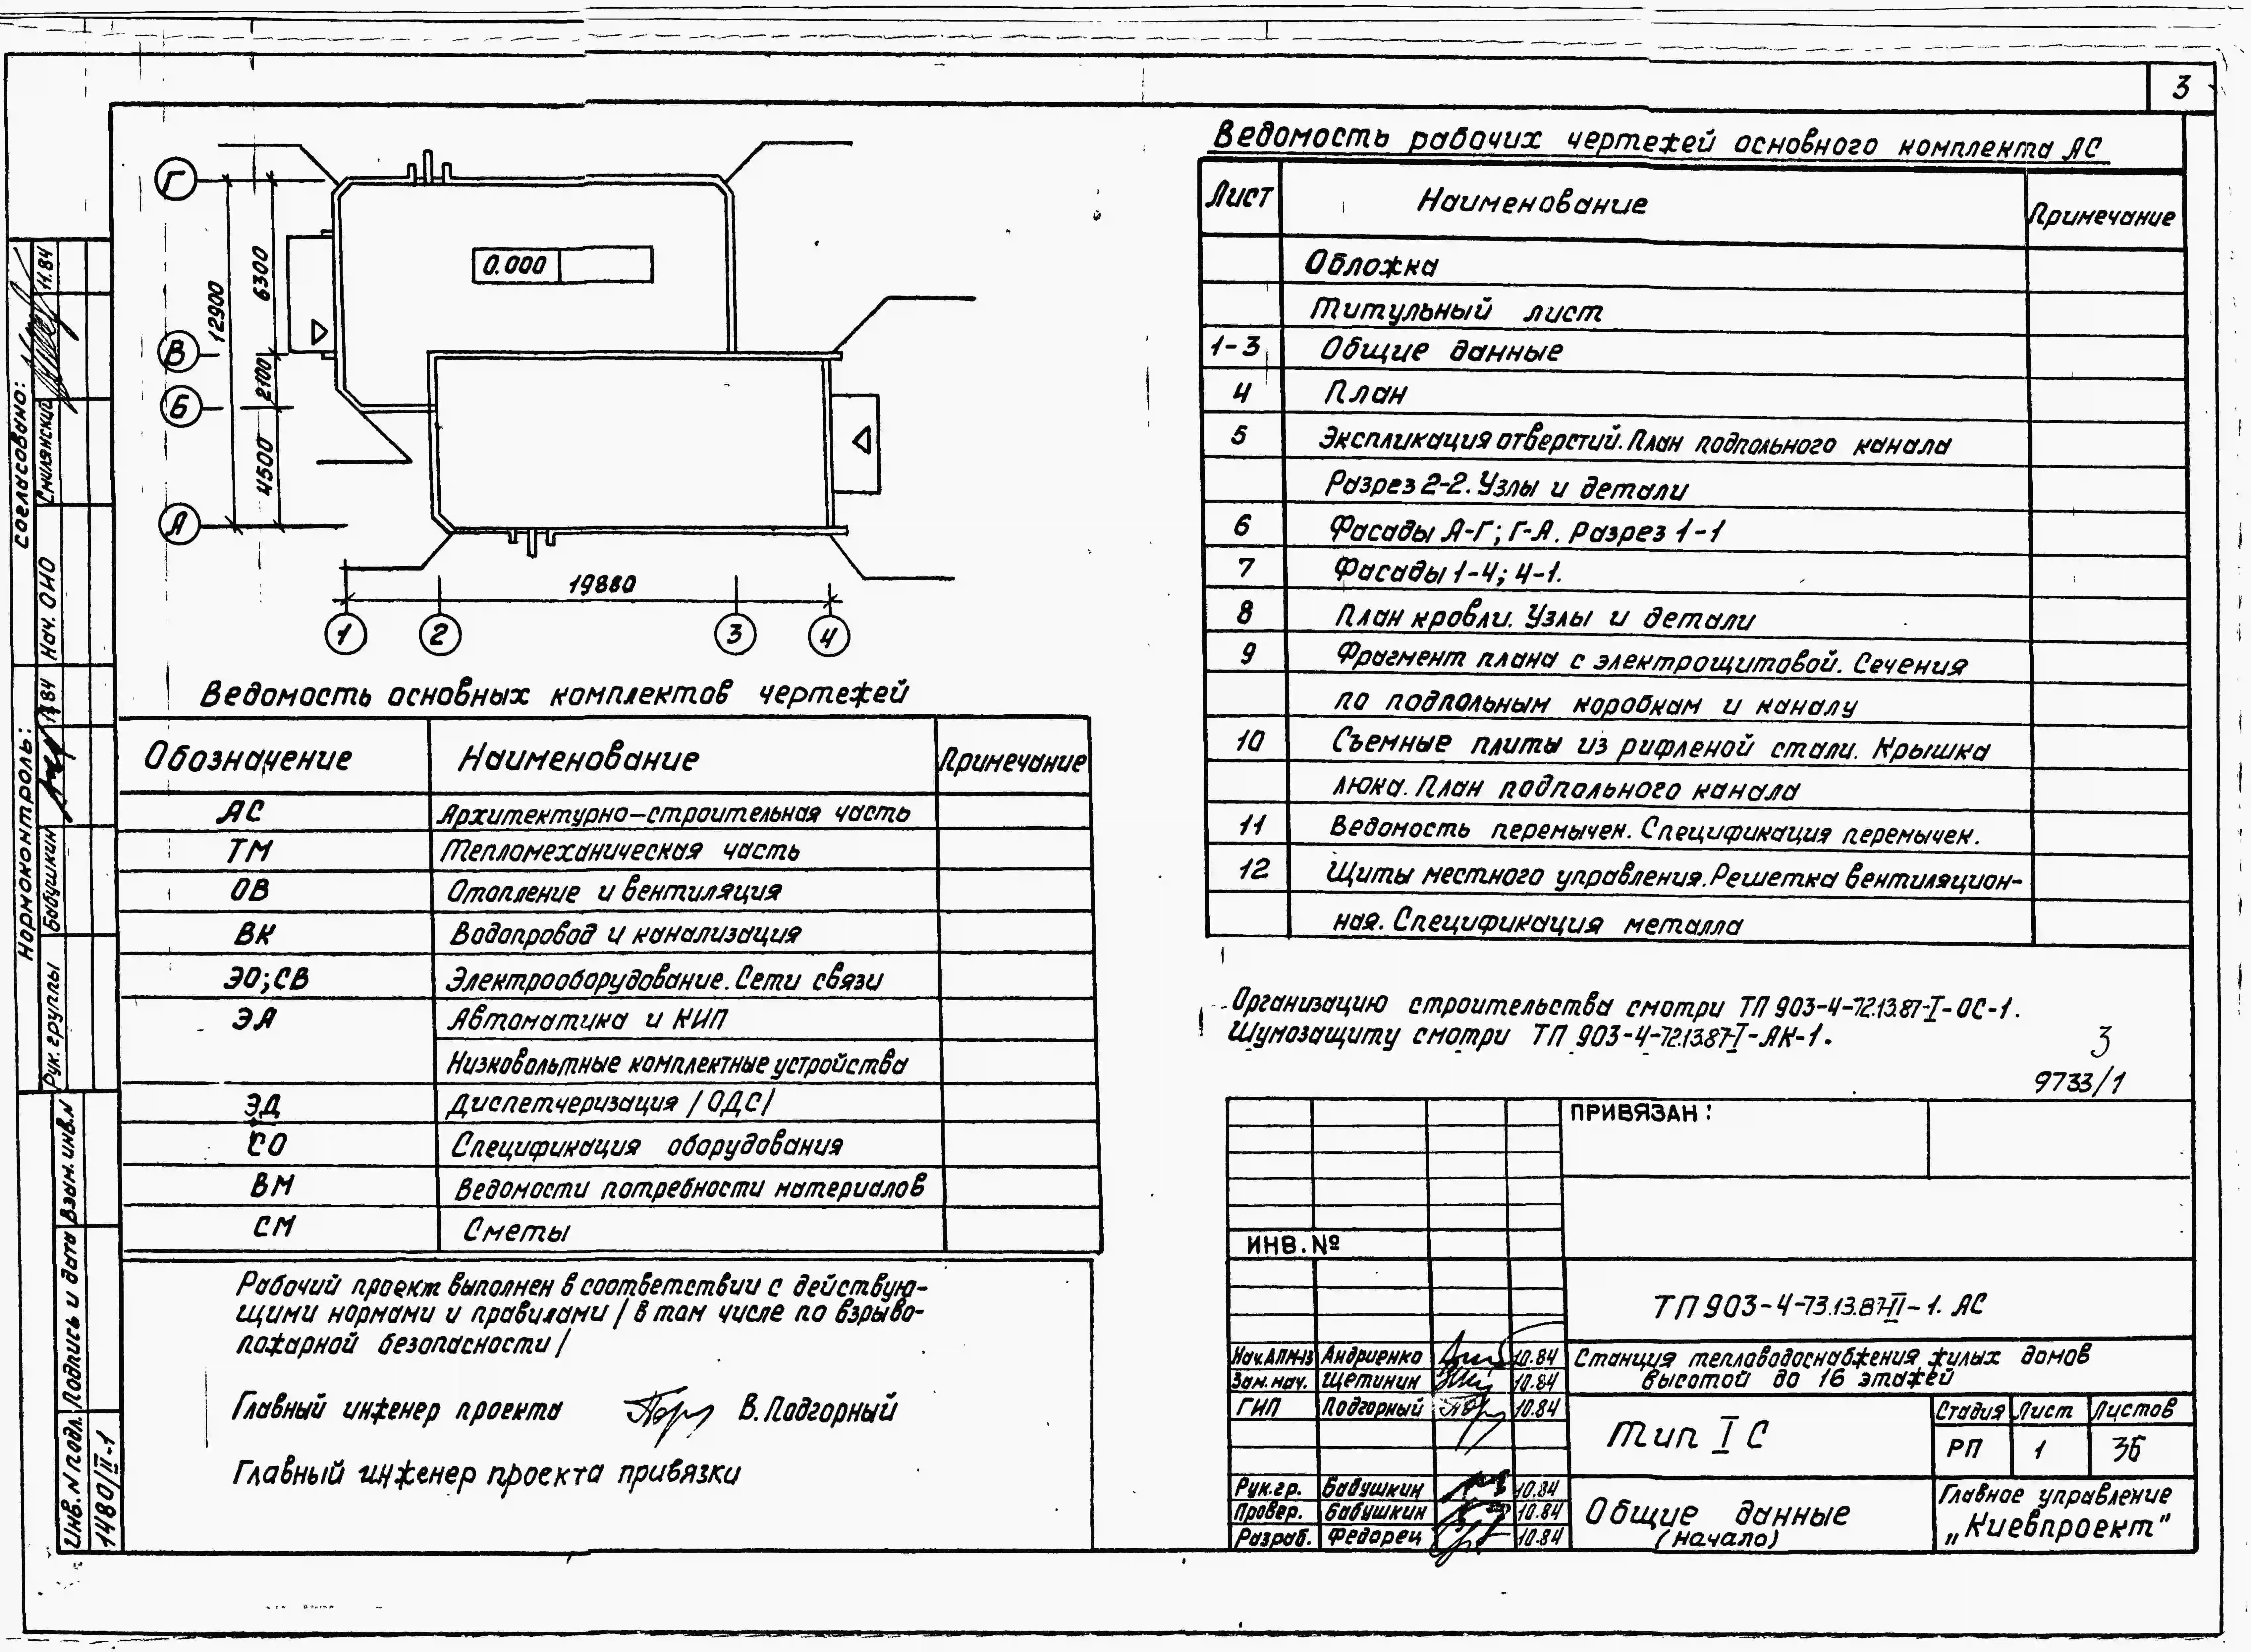 3
Г
В
Б
А
12900
6300
2100
4500
0.000
19880
1
2
3
4
Ведомость основных комплектов чертежей
Обозначение Наименование Примечание
АС Архитектурно-строительная часть
ТМ Тепломеханическая часть
ОВ Отопление и вентиляция
ВК Водопровод и канализация
ЭО;СВ Электрооборудование. Сети связи
ЭА Автоматика и КИП
Низковольтные комплектные устройства
ЭД Диспетчеризация /ОДС/
СО Спецификация оборудования
ВМ Ведомости потребности материалов
СМ Сметы
Рабочий проект выполнен в соответствии с действую-
щими нормами и правилами / в том числе по взрыво-
пожарной безопасности /
Главный инженер проекта В. Подгорный
Главный инженер проекта привязки
Ведомость рабочих чертежей основного комплекта АС
Лист Наименование Примечание
Обложка
Титульный лист
1-3 Общие данные
4 План
5 Экспликация отверстий. План подпольного канала
Разрез 2-2. Узлы и детали
6 Фасады А-Г; Г-А. Разрез 1-1
7 Фасады 1-4; 4-1.
8 План кровли. Узлы и детали
9 Фрагмент плана с электрощитовой. Сечения
по подпольным коробкам и каналу
10 Съемные плиты из рифленой стали. Крышка
люка. План подпольного канала
11 Ведомость перемычек. Спецификация перемычек.
12 Щиты местного управления. Решетка вентиляцион-
ная. Спецификация металла
Организацию строительства смотри ТП 903-4-72.13.87-I-ОС-1.
Шумозащиту смотри ТП 903-4-72.13.87-I-АК-1.
3
9733/1
ПРИВЯЗАН:
ИНВ. №
ТП 903-4-73.13.87-II-1. АС
Нач.АПМ-13 Андриенко 10.84
Зам.нач. Щетинин 10.84
ГИП Подгорный 10.84
Рук.гр. Бабушкин 10.84
Провер. Бабушкин 10.84
Разраб. Федорец 10.84
Станция тепловодоснабжения жилых домов
высотой до 16 этажей
Тип I С
Стадия Лист Листов
РП 1 36
Общие данные
(начало)
Главное управление
„Киевпроект"
Согласовано:
Нач. ОНО Смилянский 11.84
Нормоконтроль:
Рук. группы Бабушкин 11.84
Взам. инв.N
Подпись и дата
Инв. N подл.
1480/II-1